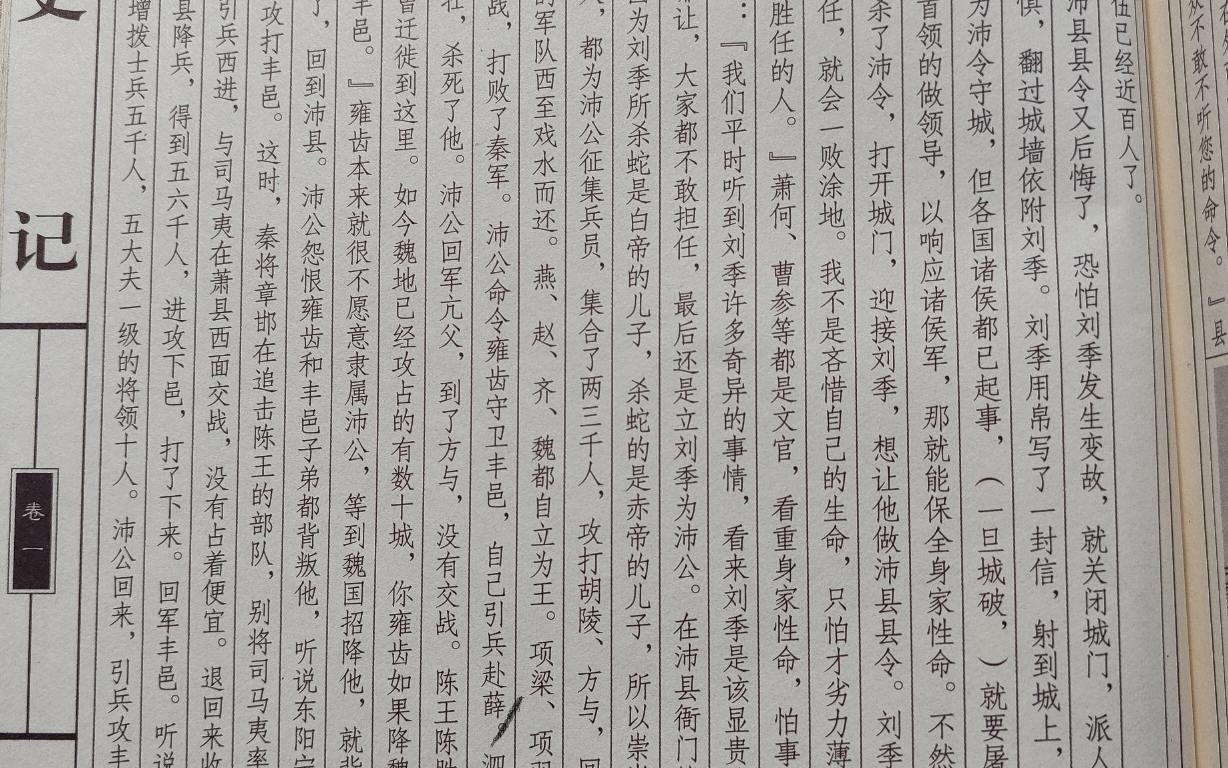 从不敢不听您的命令。』县
伍已经近百人了。
沛县县令又后悔了，恐怕刘季发生变故，就关闭城门，派人
惧，翻过城墙依附刘季。刘季用帛写了一封信，射到城上，
为沛令守城，但各国诸侯都已起事，（一旦城破，）就要屠
首领的做领导，以响应诸侯军，那就能保全身家性命。不然
杀了沛令，打开城门，迎接刘季，想让他做沛县县令。刘季
任，就会一败涂地。我不是吝惜自己的生命，只怕才劣力薄
胜任的人。』萧何、曹参等都是文官，看重身家性命，怕事
：『我们平时听到刘季许多奇异的事情，看来刘季是该显贵
让，大家都不敢担任，最后还是立刘季为沛公。在沛县衙门
因为刘季所杀蛇是白帝的儿子，杀蛇的是赤帝的儿子，所以崇
人，都为沛公征集兵员，集合了两三千人，攻打胡陵、方与，回
的军队西至戏水而还。燕、赵、齐、魏都自立为王。项梁、项羽
战，打败了秦军。沛公命令雍齿守卫丰邑，自己引兵赴薛。泗
壮，杀死了他。沛公回军亢父，到了方与，没有交战。陈王陈胜
曾迁徙到这里。如今魏地已经攻占的有数十城，你雍齿如果降魏
丰邑。』雍齿本来就很不愿意隶属沛公，等到魏国招降他，就背
了，回到沛县。沛公怨恨雍齿和丰邑子弟都背叛他，听说东阳宁
攻打丰邑。这时，秦将章邯在追击陈王的部队，别将司马夷率
引兵西进，与司马夷在萧县西面交战，没有占着便宜。退回来收
县降兵，得到五六千人，进攻下邑，打了下来。回军丰邑。听说
增拨士兵五千人，五大夫一级的将领十人。沛公回来，引兵攻丰
史记
卷一